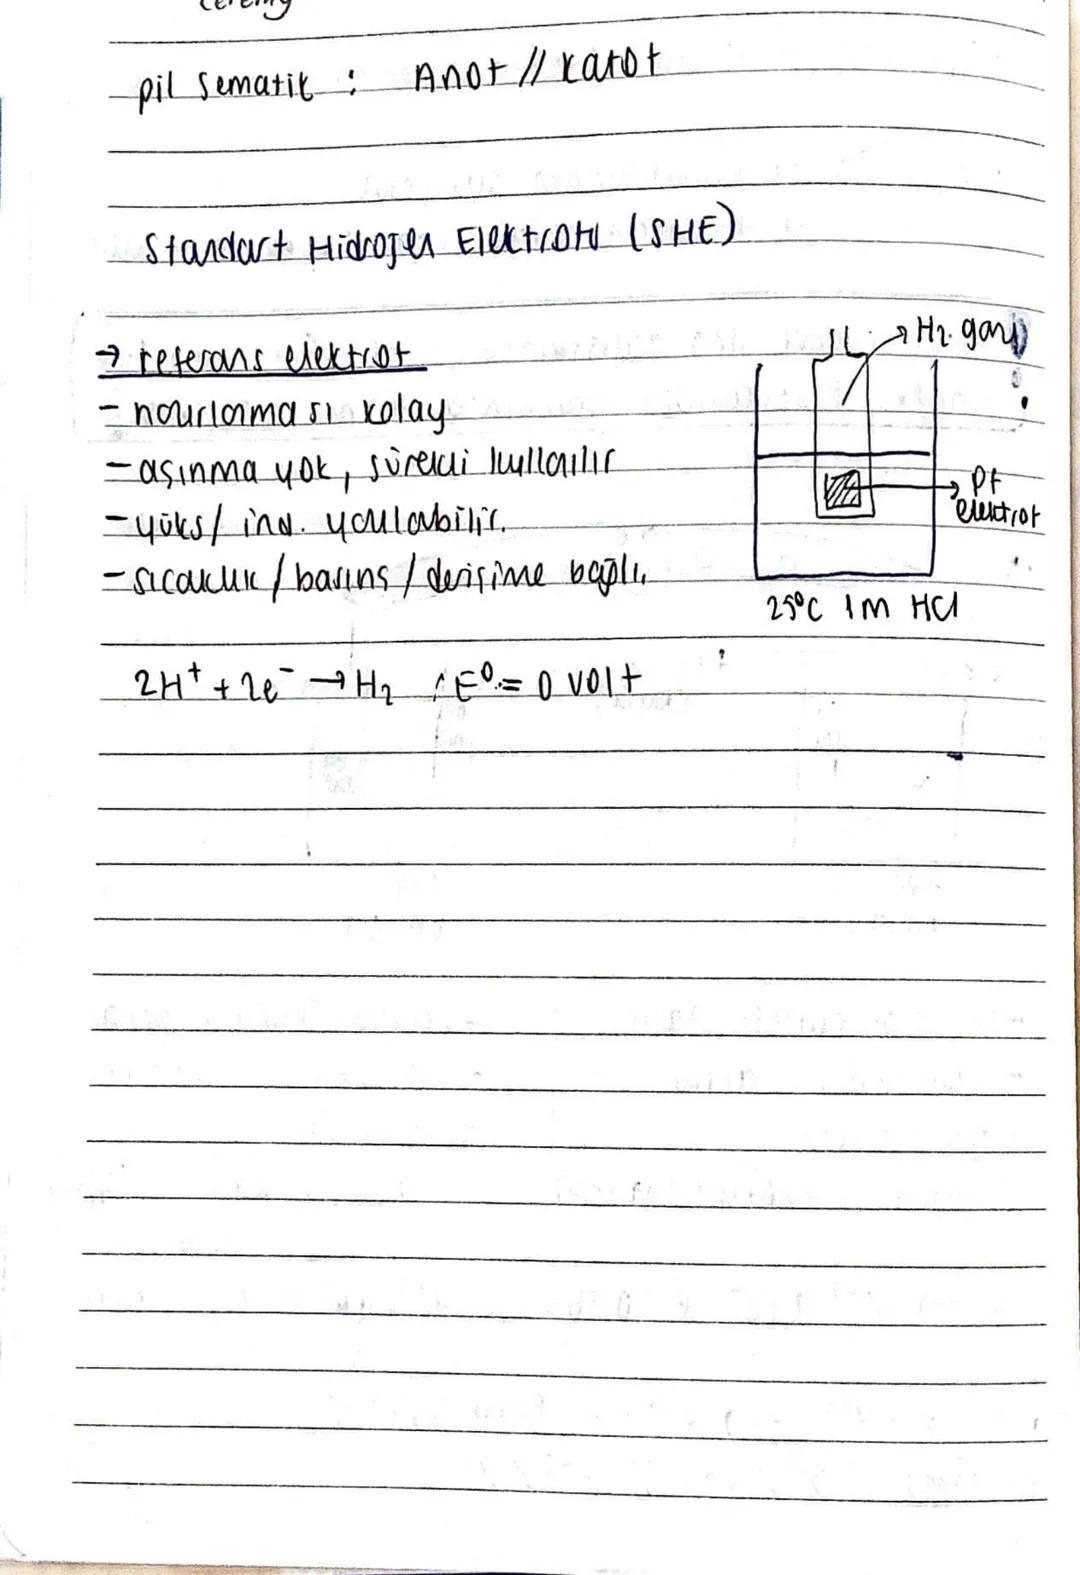 pil Sematik : Anot // Katot
Standart Hidrojen Elektrotu (SHE)
→ referans elektrot
- hazırlanması kolay
- aşınma yok, sürekli kullanılır
- yüks / ind. yapılabilir.
- sıcaklık / basınç / derişime bağlı
H2 gazı
Pt
elektrot
25°C 1M HCl
2H⁺ + 2e⁻ → H₂ E⁰ = 0 volt